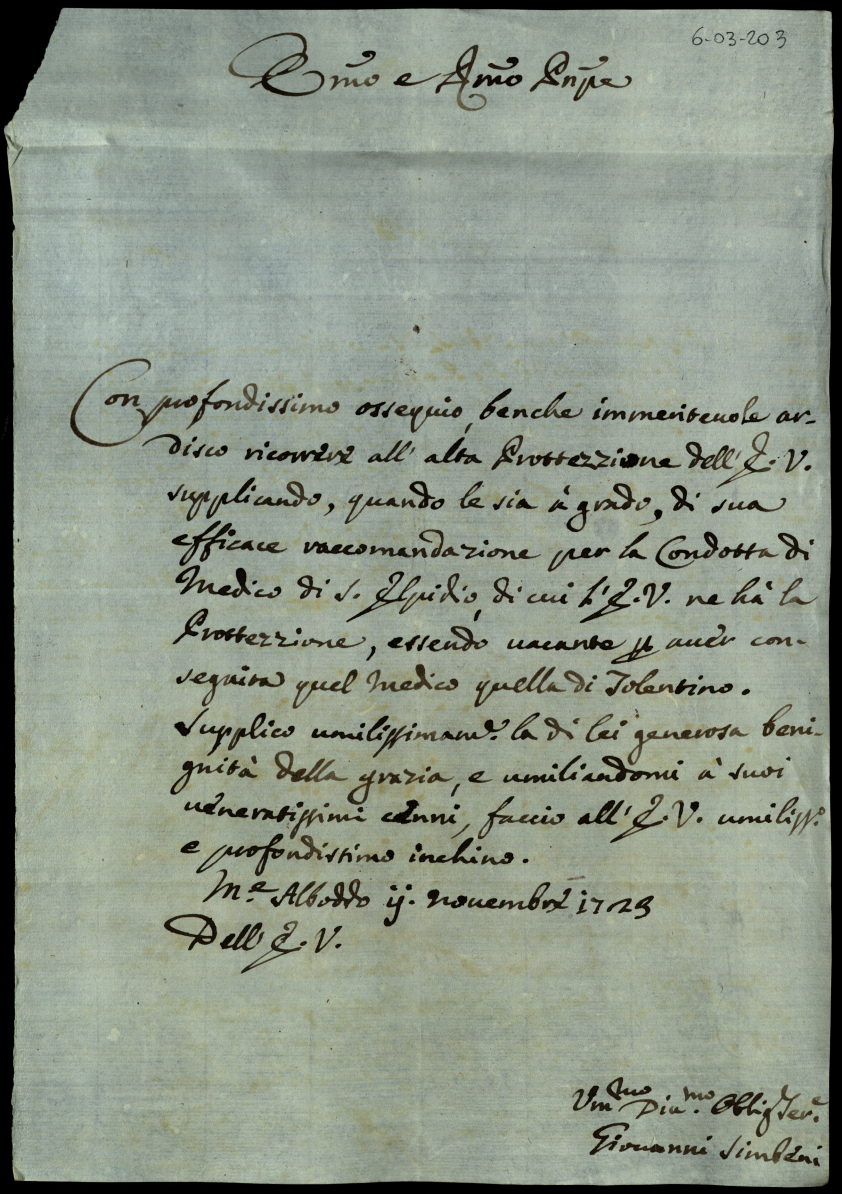 6-03-203
E͞mo e R͞mo Pn͞pe
Con profondissimo ossequio, benche immeriteuole ar-
disco ricorrere all' alta Prottezzione dell' E. V.
supplicando, quando le sia à grado, di sua
efficace raccomandazione per la Condotta di
Medico di S. Elpidio, di cui l' E. V. ne hà la
Prottezzione, essendo uacante ꝑ auer con-
seguita quel Medico quella di Tolentino.
Supplico umilissimam.e la di lei generosa beni-
gnità della grazia, e umiliandomi à suoi
ueneratissimi cenni, faccio all' E. V. umiliss.o
e profondissimo inchino.
M.e Alboddo ij. Nouembre 1723
Dell' E. V.
Um.mo Diu.mo Oblig. Ser.e
Giouanni Simbeni